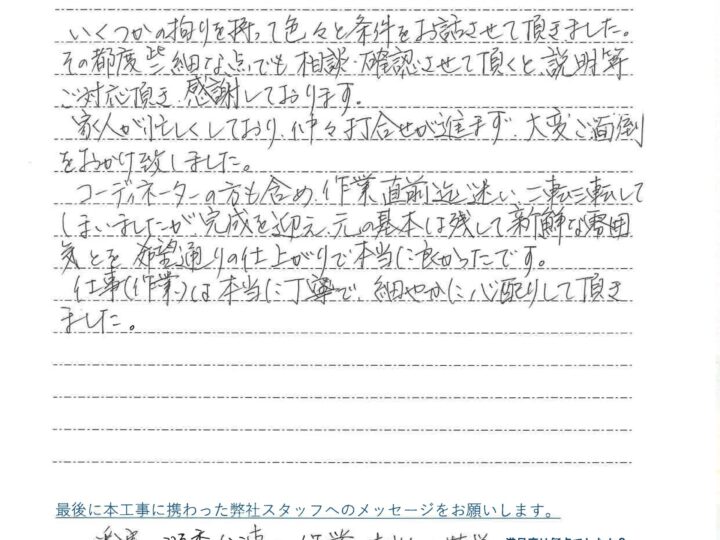 いくつかの拘りを持って色々と条件をお話させて頂きました。
その都度些細な点でも相談・確認させて頂くと、説明等
ご対応頂き感謝しております。
家人が忙しくしており、仲々打合せが進まず、大変ご面倒
をおかけ致しました。
コーディネーターの方も含め、作業直前迄迷い、二転三転して
しまいましたが完成を迎え、元の基本は残して新鮮な雰囲
気とを希望通りの仕上がりで本当に良かったです。
仕事(作業)は本当に丁寧で、細やかに心配りして頂き
ました。
最後に本工事に携わった弊社スタッフへのメッセージをお願いします。